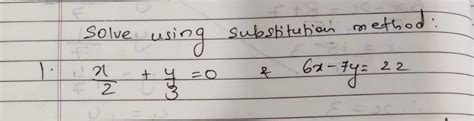 Solve using substitution method:
1. x/2 + y/3 = 0 & 6x-7y= 22